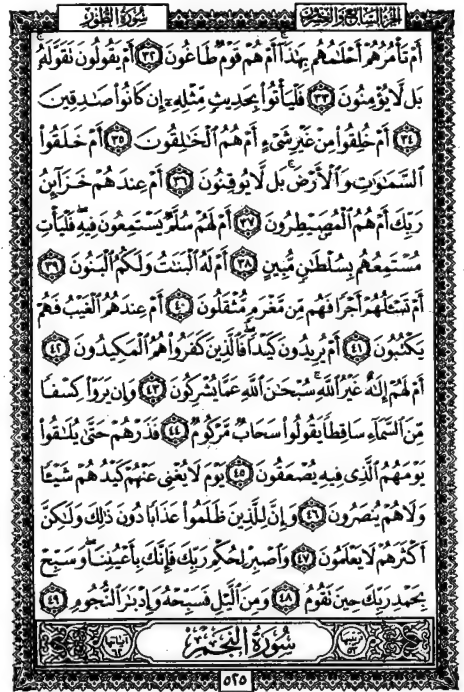 سُورَةُ الطُّورِ الجُزْءُ السَّابِعُ وَالعِشْرُونَ
أَمْ تَأْمُرُهُمْ أَحْلَٰمُهُم بِهَٰذَآ ۚ أَمْ هُمْ قَوْمٌ طَاغُونَ ٣٢ أَمْ يَقُولُونَ تَقَوَّلَهُۥ
بَل لَّا يُؤْمِنُونَ ٣٣ فَلْيَأْتُوا۟ بِحَدِيثٍ مِّثْلِهِۦٓ إِن كَانُوا۟ صَٰدِقِينَ
٣٤ أَمْ خُلِقُوا۟ مِنْ غَيْرِ شَىْءٍ أَمْ هُمُ ٱلْخَٰلِقُونَ ٣٥ أَمْ خَلَقُوا۟
ٱلسَّمَٰوَٰتِ وَٱلْأَرْضَ ۚ بَل لَّا يُوقِنُونَ ٣٦ أَمْ عِندَهُمْ خَزَآئِنُ
رَبِّكَ أَمْ هُمُ ٱلْمُصَۣيْطِرُونَ ٣٧ أَمْ لَهُمْ سُلَّمٌ يَسْتَمِعُونَ فِيهِ ۖ فَلْيَأْتِ
مُسْتَمِعُهُم بِسُلْطَٰنٍ مُّبِينٍ ٣٨ أَمْ لَهُ ٱلْبَنَٰتُ وَلَكُمُ ٱلْبَنُونَ ٣٩
أَمْ تَسْـَٔلُهُمْ أَجْرًا فَهُم مِّن مَّغْرَمٍ مُّثْقَلُونَ ٤٠ أَمْ عِندَهُمُ ٱلْغَيْبُ فَهُمْ
يَكْتُبُونَ ٤١ أَمْ يُرِيدُونَ كَيْدًا ۖ فَٱلَّذِينَ كَفَرُوا۟ هُمُ ٱلْمَكِيدُونَ ٤٢
أَمْ لَهُمْ إِلَٰهٌ غَيْرُ ٱللَّهِ ۚ سُبْحَٰنَ ٱللَّهِ عَمَّا يُشْرِكُونَ ٤٣ وَإِن يَرَوْا۟ كِسْفًا
مِّنَ ٱلسَّمَآءِ سَاقِطًا يَقُولُوا۟ سَحَابٌ مَّرْكُومٌ ٤٤ فَذَرْهُمْ حَتَّىٰ يُلَٰقُوا۟
يَوْمَهُمُ ٱلَّذِى فِيهِ يُصْعَقُونَ ٤٥ يَوْمَ لَا يُغْنِى عَنْهُمْ كَيْدُهُمْ شَيْـًٔا
وَلَا هُمْ يُنصَرُونَ ٤٦ وَإِنَّ لِلَّذِينَ ظَلَمُوا۟ عَذَابًا دُونَ ذَٰلِكَ وَلَٰكِنَّ
أَكْثَرَهُمْ لَا يَعْلَمُونَ ٤٧ وَٱصْبِرْ لِحُكْمِ رَبِّكَ فَإِنَّكَ بِأَعْيُنِنَا ۖ وَسَبِّحْ
بِحَمْدِ رَبِّكَ حِينَ تَقُومُ ٤٨ وَمِنَ ٱلَّيْلِ فَسَبِّحْهُ وَإِدْبَٰرَ ٱلنُّجُومِ ٤٩
سُورَةُ النَّجْمِ
٥٢٥